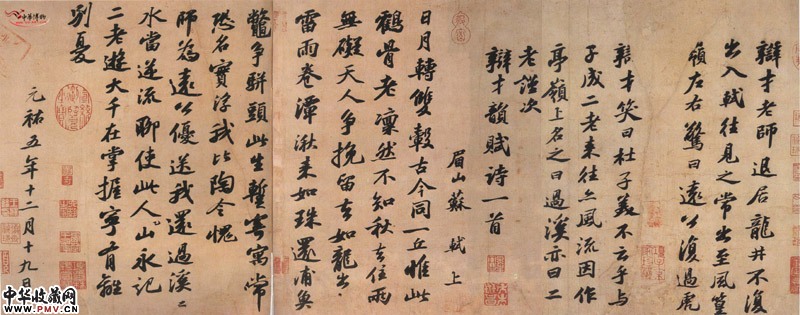 辯才老師退居龍井不復
出入軾往見之常出至風篁
嶺左右驚曰遠公復過虎
辯才笑曰杜子美不云乎与
子成二老来往亦風流因作
亭嶺上名之曰過溪亦曰二
老謹次
辯才韻賦詩一首
眉山蘇軾上
日月轉雙轂古今同一丘惟此
鶴骨老凜然不知秋去住兩
無礙天人争挽留去如龍出
雷雨卷潭湫来如珠還浦魚
鼈争駢頭此生暫寄寓常
恐名實浮我比陶令愧
師為遠公優送我還過溪〻
水當逆流聊使此人山永記
二老遊大千在掌握寧有離
別憂
元祐五年十二月十九日
中华博物
中华收藏网
WWW.PMV.CN